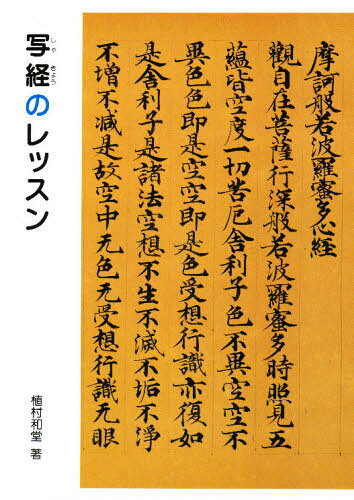 しゃ きょう
写経のレッスン
植村和堂 著
摩訶般若波羅蜜多心経
觀自在菩薩行深般若波羅蜜多時照見五
蘊皆空度一切苦厄舎利子色不異空空不
異色色即是空空即是色受想行識亦復如
是舎利子是諸法空想不生不滅不垢不淨
不増不減是故空中无色无受想行識无眼